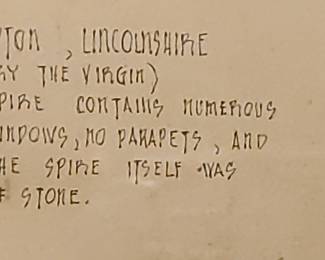 TON, LINCOLNSHIRE
RY THE VIRGIN)
PIRE CONTAINS NUMEROUS
INDOWS, NO PARAPETS, AND
HE SPIRE ITSELF WAS
F STONE.